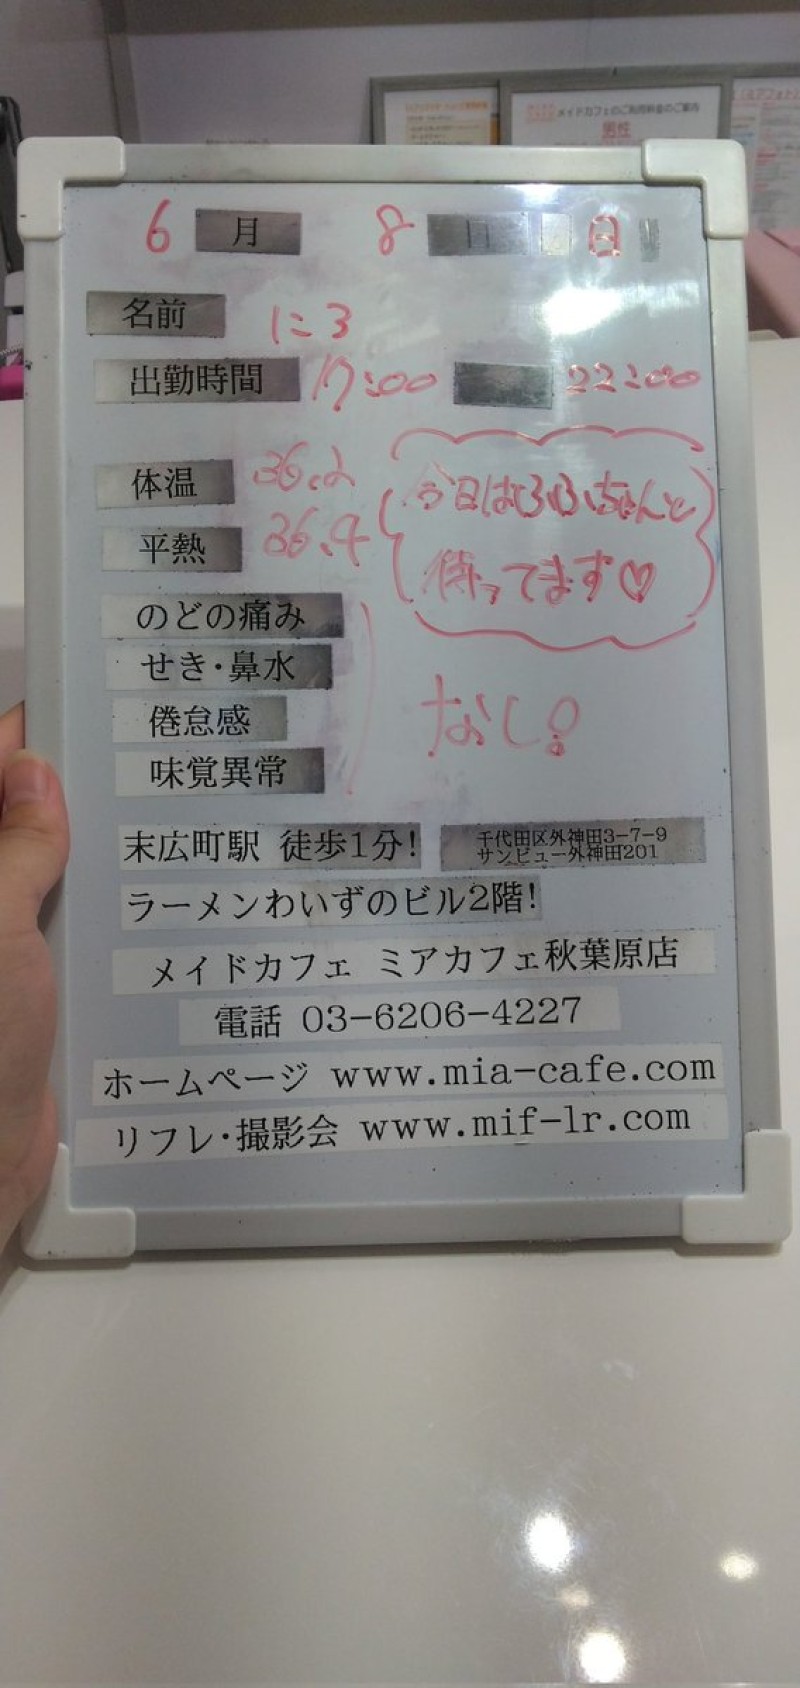 メイドカフェのご利用料金のご案内
男性
6 月 8 日 日
名前 にろ
出勤時間 17:00 22:00
体温 36.2
平熱 36.4
今日はふふちゃんと
待ってます♡
のどの痛み
せき・鼻水
倦怠感
味覚異常
なし!
末広町駅 徒歩1分!
千代田区外神田3-7-9
サンビュー外神田201
ラーメンわいずのビル2階!
メイドカフェ ミアカフェ秋葉原店
電話 03-6206-4227
ホームページ www.mia-cafe.com
リフレ・撮影会 www.mif-lr.com